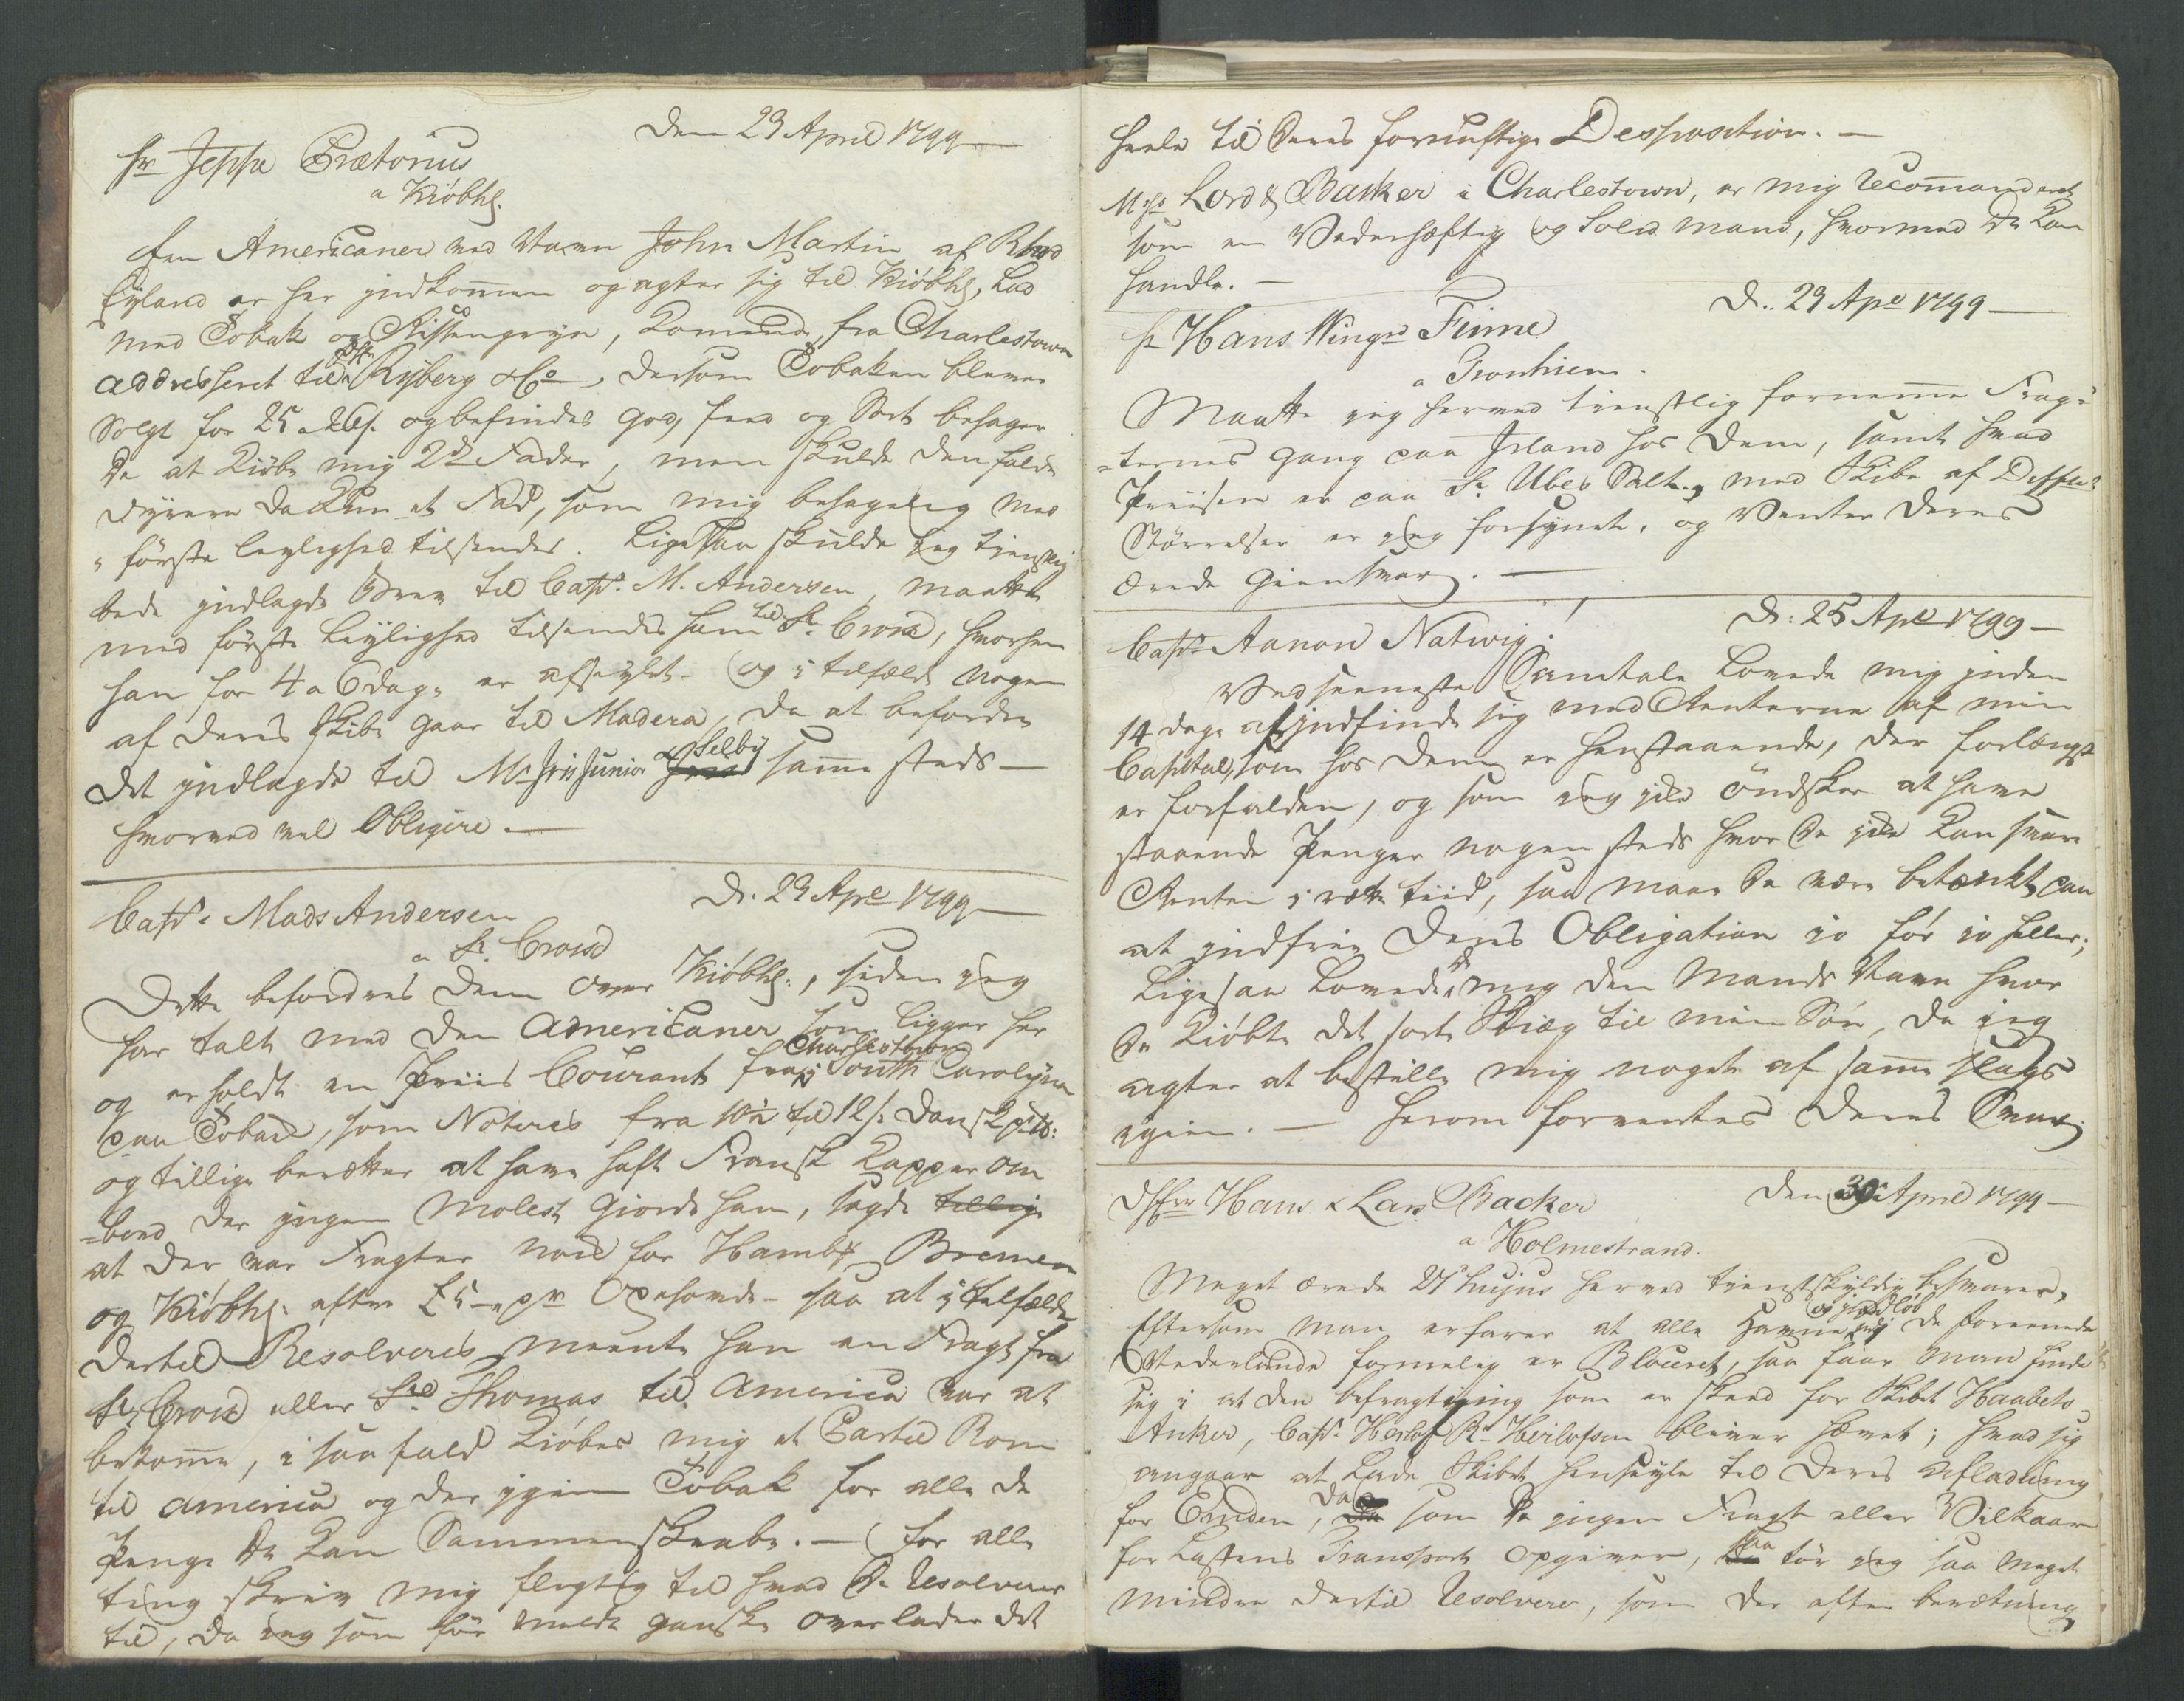 Den 23 April 1799
Hr Jeppe Prætorius
a Kiöbhg.
Een Americaner ved Navn John Martin af Rhod
Eyland er her indkommen og agter sig til Kiöbhg, Lad
med Tobak og Riissengryn, komende fra Charlestown
addresseret til DHr Ryberg & Co, dersom Tobaken bliver
Solgt for 25 a 26 s. og befindes god, feed og Sort behager
De at Kiöbe mig 2de Fader, men skulde den falde
dyrere da kun et Fad, som mig behagelig med
förste leylighed tilsendes. Ligesaa skulde jeg tienstlig
bede indlagde Brev til Capt. M. Andersen, maatte
med förste Leylighed tilsendes ham til St. Croix, hvorhen
han for 4 a 6 dage er afseylet - og i tilfælde nogen
af deris Skibe gaar til Madera, da at befordre
det indlagde til Mr Jris Junior & Selby samme steds -
hvorved vel Obligere. -
D. 23 Apl 1799
Capt. Mads Andersen
a St. Croix
Dette befordres dem over Kiöbhg:, siden jeg
har talt med den Americaner som Ligger her
og erholdt en Priis Courant fra Charlestown i South Carolyna
paa Tobak, som Noteres fra 10½ til 12 s. dansk pr. ℔:
og tillige berætter at have haft Fransk Kapper om
=bord der ingen Molest Giorde ham, sagde tillige
at der var Fragter nock for Hambg, Bremen
og Kiöbhg: efter £ 5 - pr Oxehovde - saa at i tilfælde
dertil Resolveres meente han en Fragt fra
St. Croix eller St. Thomas til America var at
bekomme, i saa fald Kiöbes mig et Partie Rom
til America og der igien Tobak for alle de
Penge De kan Sammenskrabe. - for alle
ting skriv mig flegtig til hvad De Resolverer
til, da jeg som för meldt ganske overlader det
heele til Deres fornuftige Desposition. -
Mrs Lord & Backer i Charlestown, er mig Recommanderet
som en Vederhæftig og Solid mand, hvormed De kan
handle. -
D.. 23 Apl 1799 -
Hr Hans Wingrd Finne
a Tronhiem.
Maatte jeg herved tienstlig fornemme Frag=
=ternes gang paa Irland hos Dem, samt hvad
Priisen er paa St. Ubes Salt, med Skibe af Differ:
Störrelser er jeg forsynet, og Venter Deres
ærede Giensvar. -
D: 25 Apl 1799 -
Capt Aanon Natwig.
Ved seeneste Samtale Lovede mig inden
14 dage at indfinde sig med Renterne af min
Capital, som hos dem er henstaaende, der forlængst
er forfalden, og som jeg icke öndsker at have
staaende Penger nogen steds hvor De icke kan svare
Renten i rette tiid, saa maae De være betænkt paa
at indfrie Deres Obligation io för io heller;
Ligesaa Lovede mig den Mands Navn hvor
De Kiöbte det sorte Skiæg til min Sön, da jeg
agter at bestille mig noget af samme slags
igien. - herom forventes Deres Svar.
Den 30 April 1799 -
DHrr Hans & Lars Backer
a Holmestrand.
Meget ærede 27 hujus herved tienstskyldig besvarer,
Eftersom man erfarer at alle Havne og indlöb i de foreenede
Nederlande formelig er Blocuret, saa faar man finde
sig i at den befragtning som er skeed for Skibet Haabets
Anker, Capt. Herlof Rs Herlofsen bliver hævet; hvad sig
angaar at Lade Skibet henseyle til Deres Afladning
for Emden, da som De ingen Fragt eller Vilkaar
for Lastens Transport opgiver, saa tör jeg saa meget
mindre dertil Resolvere, som der efter beretning